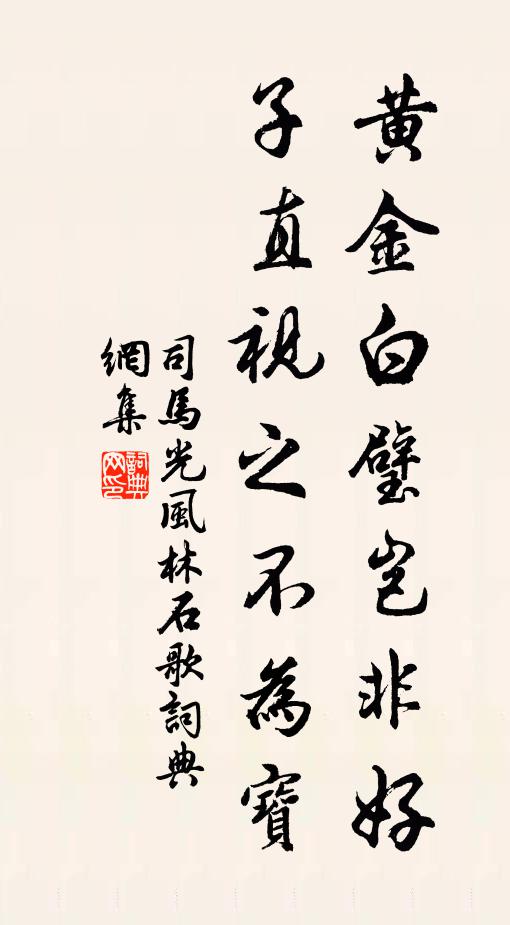 黃金白璧豈非好
子直視之不為寶
司馬光風林石歌詞典
網集
詞典網印